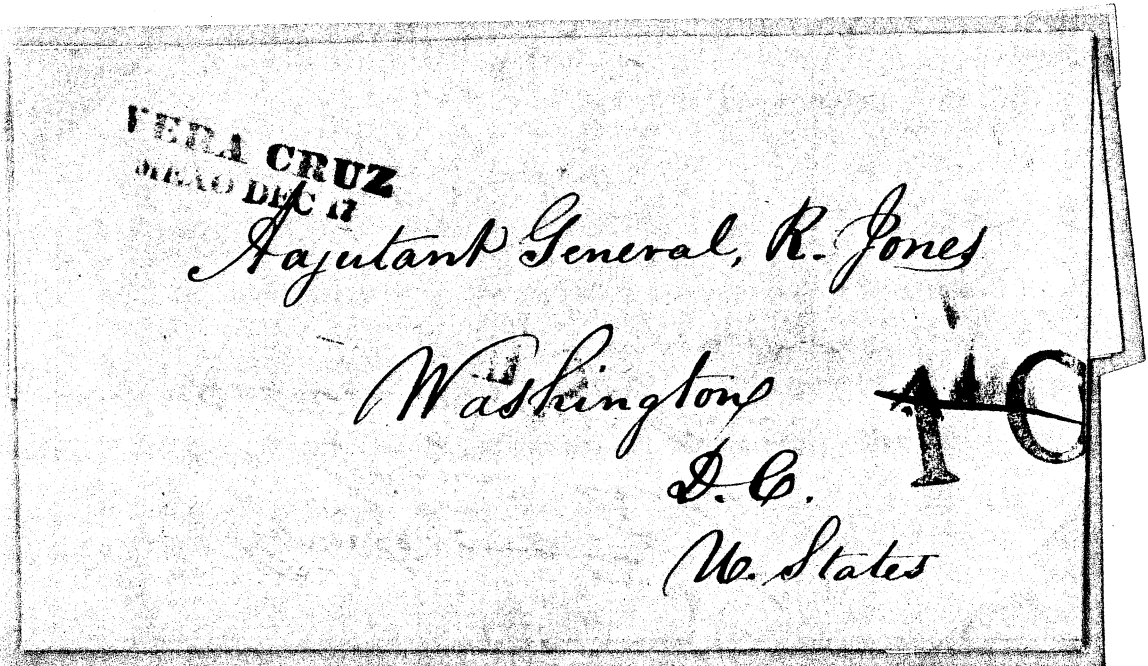 VERA CRUZ
MEXO DEC 17
Adjutant General, R. Jones
Washington
10
D.C.
U. States